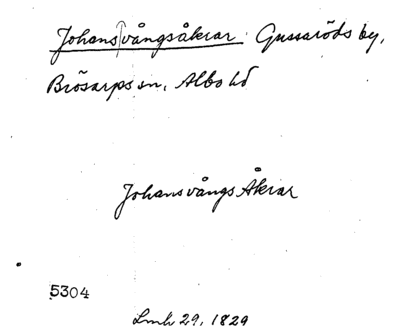 Johansvångsåkrar Gussaröds by,
Brösarps sn, Albo hd
Johansvångs Åkrar
5304
Lmh 29, 1829